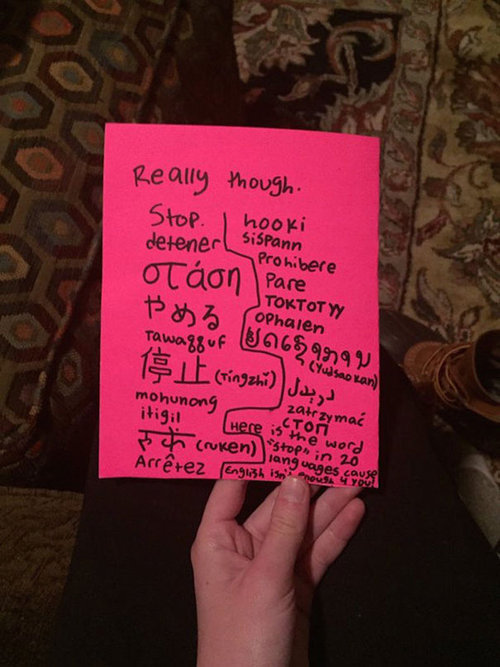 Really though.
Stop.
detener
στάση
やめる
Tawagguf
停止 (Tingzhi)
mohunong
itigil
रुके (ruken)
Arrêtez
hooki
Sispann
Prohibere
Pare
ТОКТОТУУ
Ophalen
(Yudsaokan)
دريدل
zatrzymać
СТОП
Here is the word
"stop" in 20
languages cause
English isn't enough 4 you!